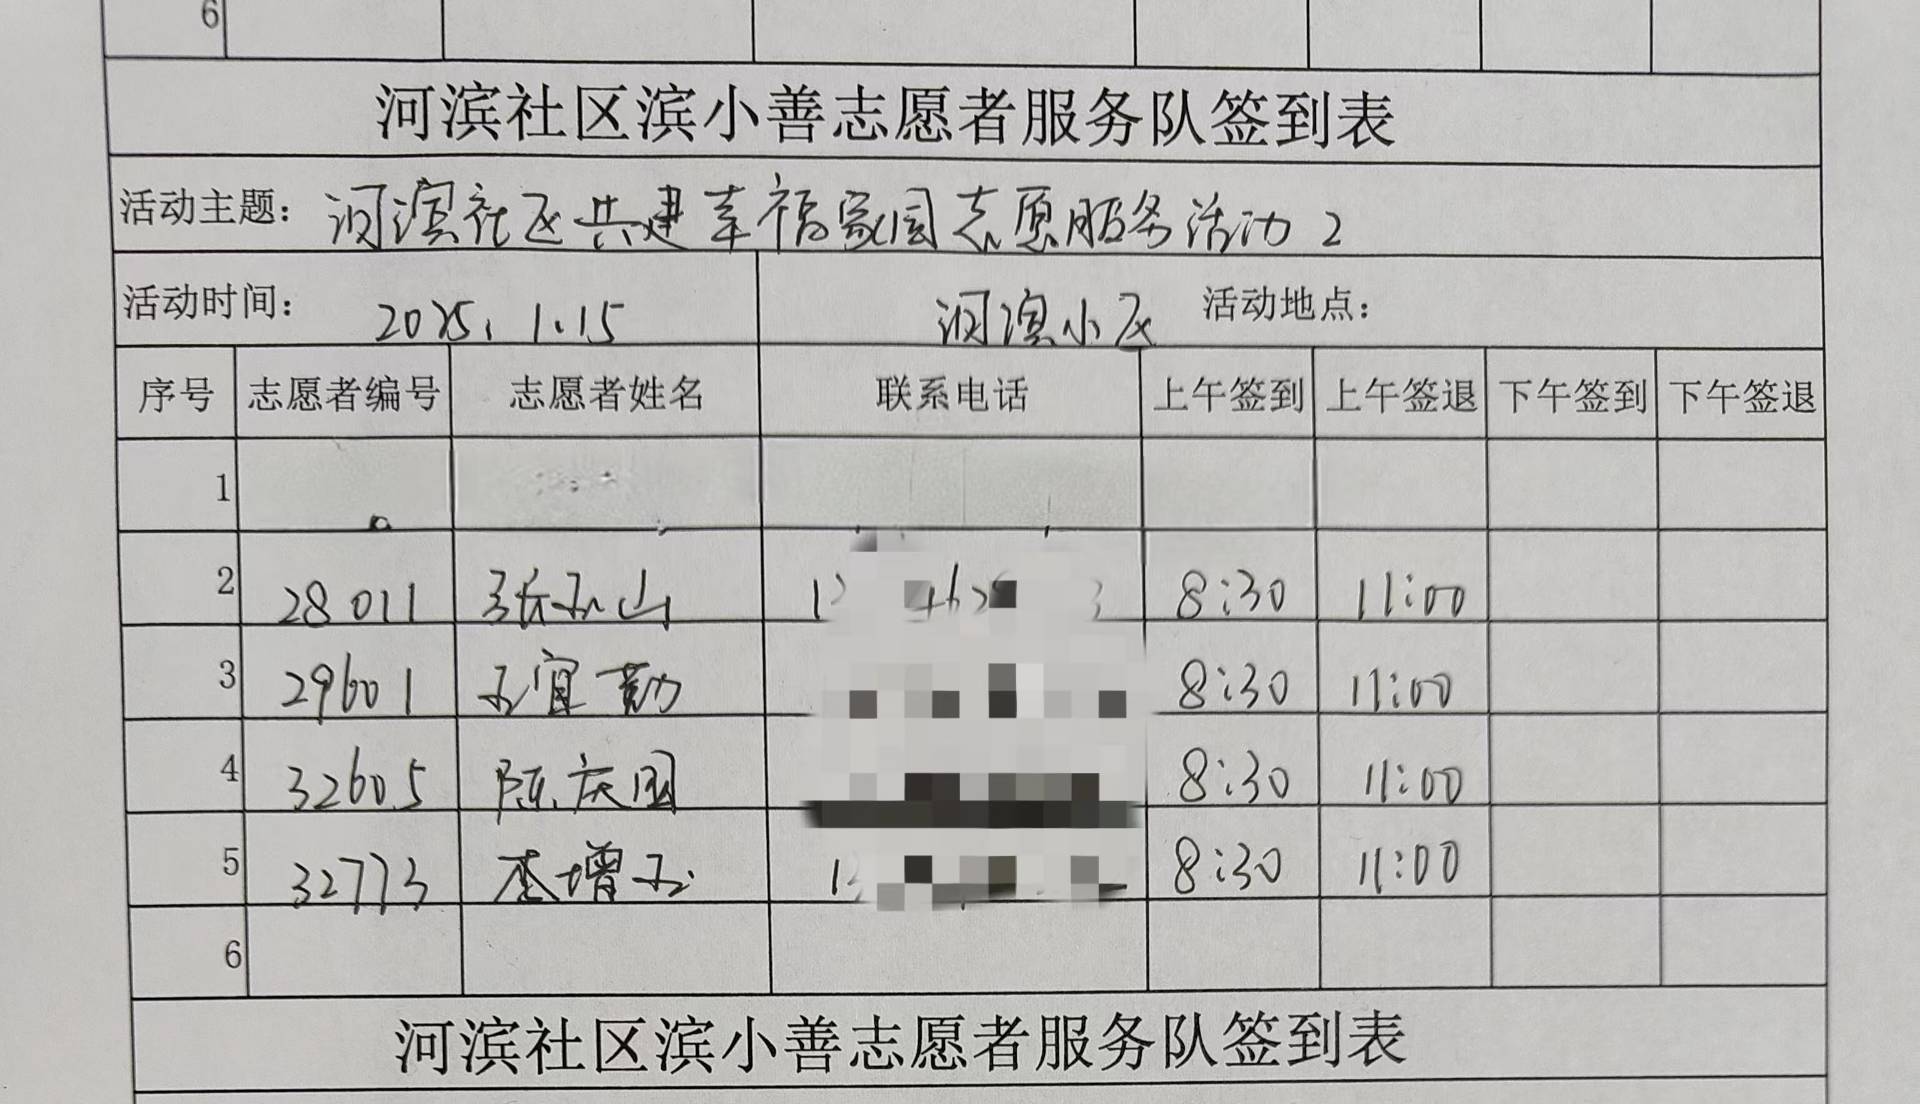 6
河滨社区滨小善志愿者服务队签到表
活动主题： 河滨社区共建幸福家园志愿服务活动2
活动时间： 2025.1.15 河滨小区 活动地点：
序号 志愿者编号 志愿者姓名 联系电话 上午签到 上午签退 下午签到 下午签退
1
2 28011 张玉山 8:30 11:00
3 29601 王宜勤 8:30 11:00
4 32605 陈庆国 8:30 11:00
5 32773 李增玉 8:30 11:00
6
河滨社区滨小善志愿者服务队签到表